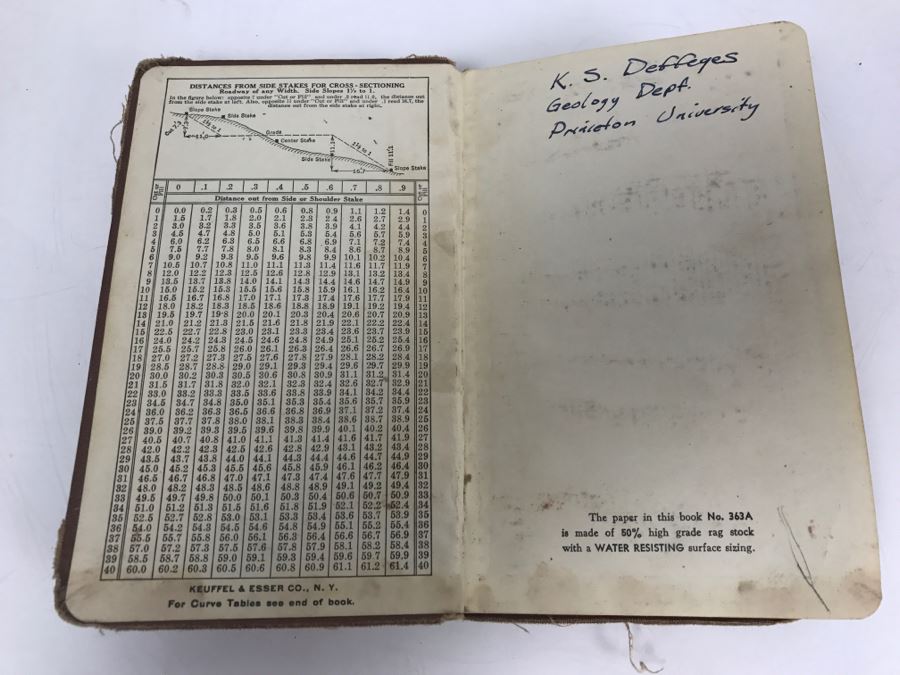 DISTANCES FROM SIDE STAKES FOR CROSS-SECTIONING
Roadway of any Width. Side Slopes 1½ to 1.
In the figure below: opposite 7 under "Cut or Fill" and under .3 read 11.0, the distance out
from the side stake at left. Also, opposite 11 under "Cut or Fill" and under .1 read 16.7, the
distance out from the side stake at right.
Slope Stake
Side Stake
Cut 7.3
1½ to 1
11.0
Grade
Center Stake
Side Stake
11.1
1½ to 1
Fill 11.1
16.7
Slope Stake
Cut or Fill 0 .1 .2 .3 .4 .5 .6 .7 .8 .9 Cut or Fill
Distance out from Side or Shoulder Stake
0 0.0 0.2 0.3 0.5 0.6 0.8 0.9 1.1 1.2 1.4 0
1 1.5 1.7 1.8 2.0 2.1 2.3 2.4 2.6 2.7 2.9 1
2 3.0 3.2 3.3 3.5 3.6 3.8 3.9 4.1 4.2 4.4 2
3 4.5 4.7 4.8 5.0 5.1 5.3 5.4 5.6 5.7 5.9 3
4 6.0 6.2 6.3 6.5 6.6 6.8 6.9 7.1 7.2 7.4 4
5 7.5 7.7 7.8 8.0 8.1 8.3 8.4 8.6 8.7 8.9 5
6 9.0 9.2 9.3 9.5 9.6 9.8 9.9 10.1 10.2 10.4 6
7 10.5 10.7 10.8 11.0 11.1 11.3 11.4 11.6 11.7 11.9 7
8 12.0 12.2 12.3 12.5 12.6 12.8 12.9 13.1 13.2 13.4 8
9 13.5 13.7 13.8 14.0 14.1 14.3 14.4 14.6 14.7 14.9 9
10 15.0 15.2 15.3 15.5 15.6 15.8 15.9 16.1 16.2 16.4 10
11 16.5 16.7 16.8 17.0 17.1 17.3 17.4 17.6 17.7 17.9 11
12 18.0 18.2 18.3 18.5 18.6 18.8 18.9 19.1 19.2 19.4 12
13 19.5 19.7 19.8 20.0 20.1 20.3 20.4 20.6 20.7 20.9 13
14 21.0 21.2 21.3 21.5 21.6 21.8 21.9 22.1 22.2 22.4 14
15 22.5 22.7 22.8 23.0 23.1 23.3 23.4 23.6 23.7 23.9 15
16 24.0 24.2 24.3 24.5 24.6 24.8 24.9 25.1 25.2 25.4 16
17 25.5 25.7 25.8 26.0 26.1 26.3 26.4 26.6 26.7 26.9 17
18 27.0 27.2 27.3 27.5 27.6 27.8 27.9 28.1 28.2 28.4 18
19 28.5 28.7 28.8 29.0 29.1 29.3 29.4 29.6 29.7 29.9 19
20 30.0 30.2 30.3 30.5 30.6 30.8 30.9 31.1 31.2 31.4 20
21 31.5 31.7 31.8 32.0 32.1 32.3 32.4 32.6 32.7 32.9 21
22 33.0 33.2 33.3 33.5 33.6 33.8 33.9 34.1 34.2 34.4 22
23 34.5 34.7 34.8 35.0 35.1 35.3 35.4 35.6 35.7 35.9 23
24 36.0 36.2 36.3 36.5 36.6 36.8 36.9 37.1 37.2 37.4 24
25 37.5 37.7 37.8 38.0 38.1 38.3 38.4 38.6 38.7 38.9 25
26 39.0 39.2 39.3 39.5 39.6 39.8 39.9 40.1 40.2 40.4 26
27 40.5 40.7 40.8 41.0 41.1 41.3 41.4 41.6 41.7 41.9 27
28 42.0 42.2 42.3 42.5 42.6 42.8 42.9 43.1 43.2 43.4 28
29 43.5 43.7 43.8 44.0 44.1 44.3 44.4 44.6 44.7 44.9 29
30 45.0 45.2 45.3 45.5 45.6 45.8 45.9 46.1 46.2 46.4 30
31 46.5 46.7 46.8 47.0 47.1 47.3 47.4 47.6 47.7 47.9 31
32 48.0 48.2 48.3 48.5 48.6 48.8 48.9 49.1 49.2 49.4 32
33 49.5 49.7 49.8 50.0 50.1 50.3 50.4 50.6 50.7 50.9 33
34 51.0 51.2 51.3 51.5 51.6 51.8 51.9 52.1 52.2 52.4 34
35 52.5 52.7 52.8 53.0 53.1 53.3 53.4 53.6 53.7 53.9 35
36 54.0 54.2 54.3 54.5 54.6 54.8 54.9 55.1 55.2 55.4 36
37 55.5 55.7 55.8 56.0 56.1 56.3 56.4 56.6 56.7 56.9 37
38 57.0 57.2 57.3 57.5 57.6 57.8 57.9 58.1 58.2 58.4 38
39 58.5 58.7 58.8 59.0 59.1 59.3 59.4 59.6 59.7 59.9 39
40 60.0 60.2 60.3 60.5 60.6 60.8 60.9 61.1 61.2 61.4 40
KEUFFEL & ESSER CO., N. Y.
For Curve Tables see end of book.
K. S. Deffeyes
Geology Dept.
Princeton University
The paper in this book No. 363A
is made of 50% high grade rag stock
with a WATER RESISTING surface sizing.